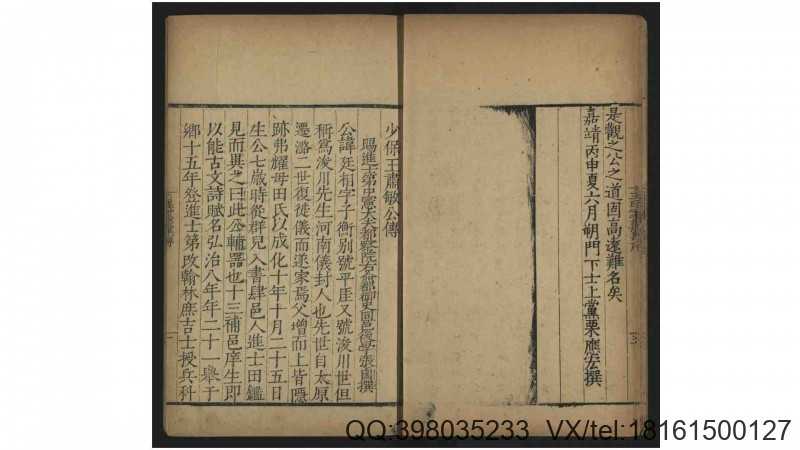 是觀之公之道固高遠難名矣
嘉靖丙申夏六月朔門下士上黨栗應宏撰
少保王肅敏公傳
賜進士第中憲大夫都察院右僉都御史同邑後學張鹵撰
公諱廷相字子衡別號平厓又號浚川世但
稱爲浚川先生河南儀封人也先世自太原
遷潞二世復徙儀而遂家焉父增而上皆隱
跡弗耀母田氏以成化十年十月二十五日
生公七歲時從群兒入書肆邑人進士田鑑
見而異之曰此公輔器也十三補邑庠生即
以能古文詩賦名弘治八年年二十一舉于
鄉十五年登進士第改翰林庶吉士授兵科
QQ:398035233 VX/tel:18161500127